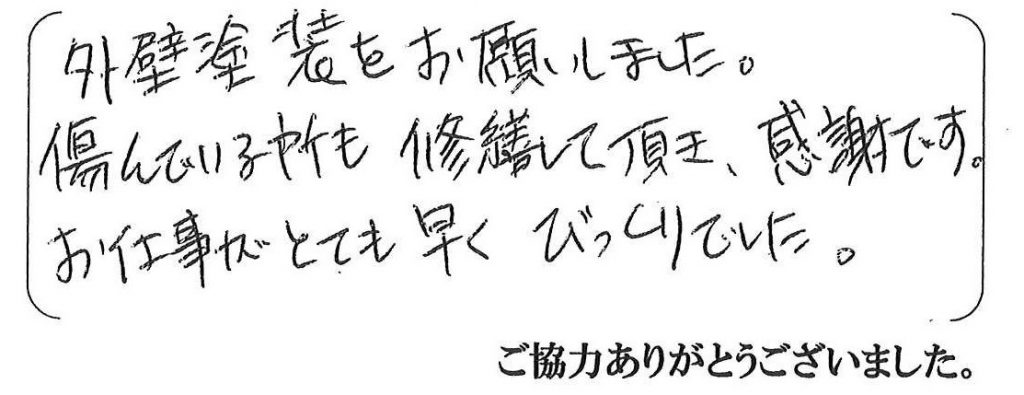 外壁塗装をお願いしました。
傷んでいる所も修繕して頂き、感謝です。
お仕事がとても早くびっくりでした。
ご協力ありがとうございました。